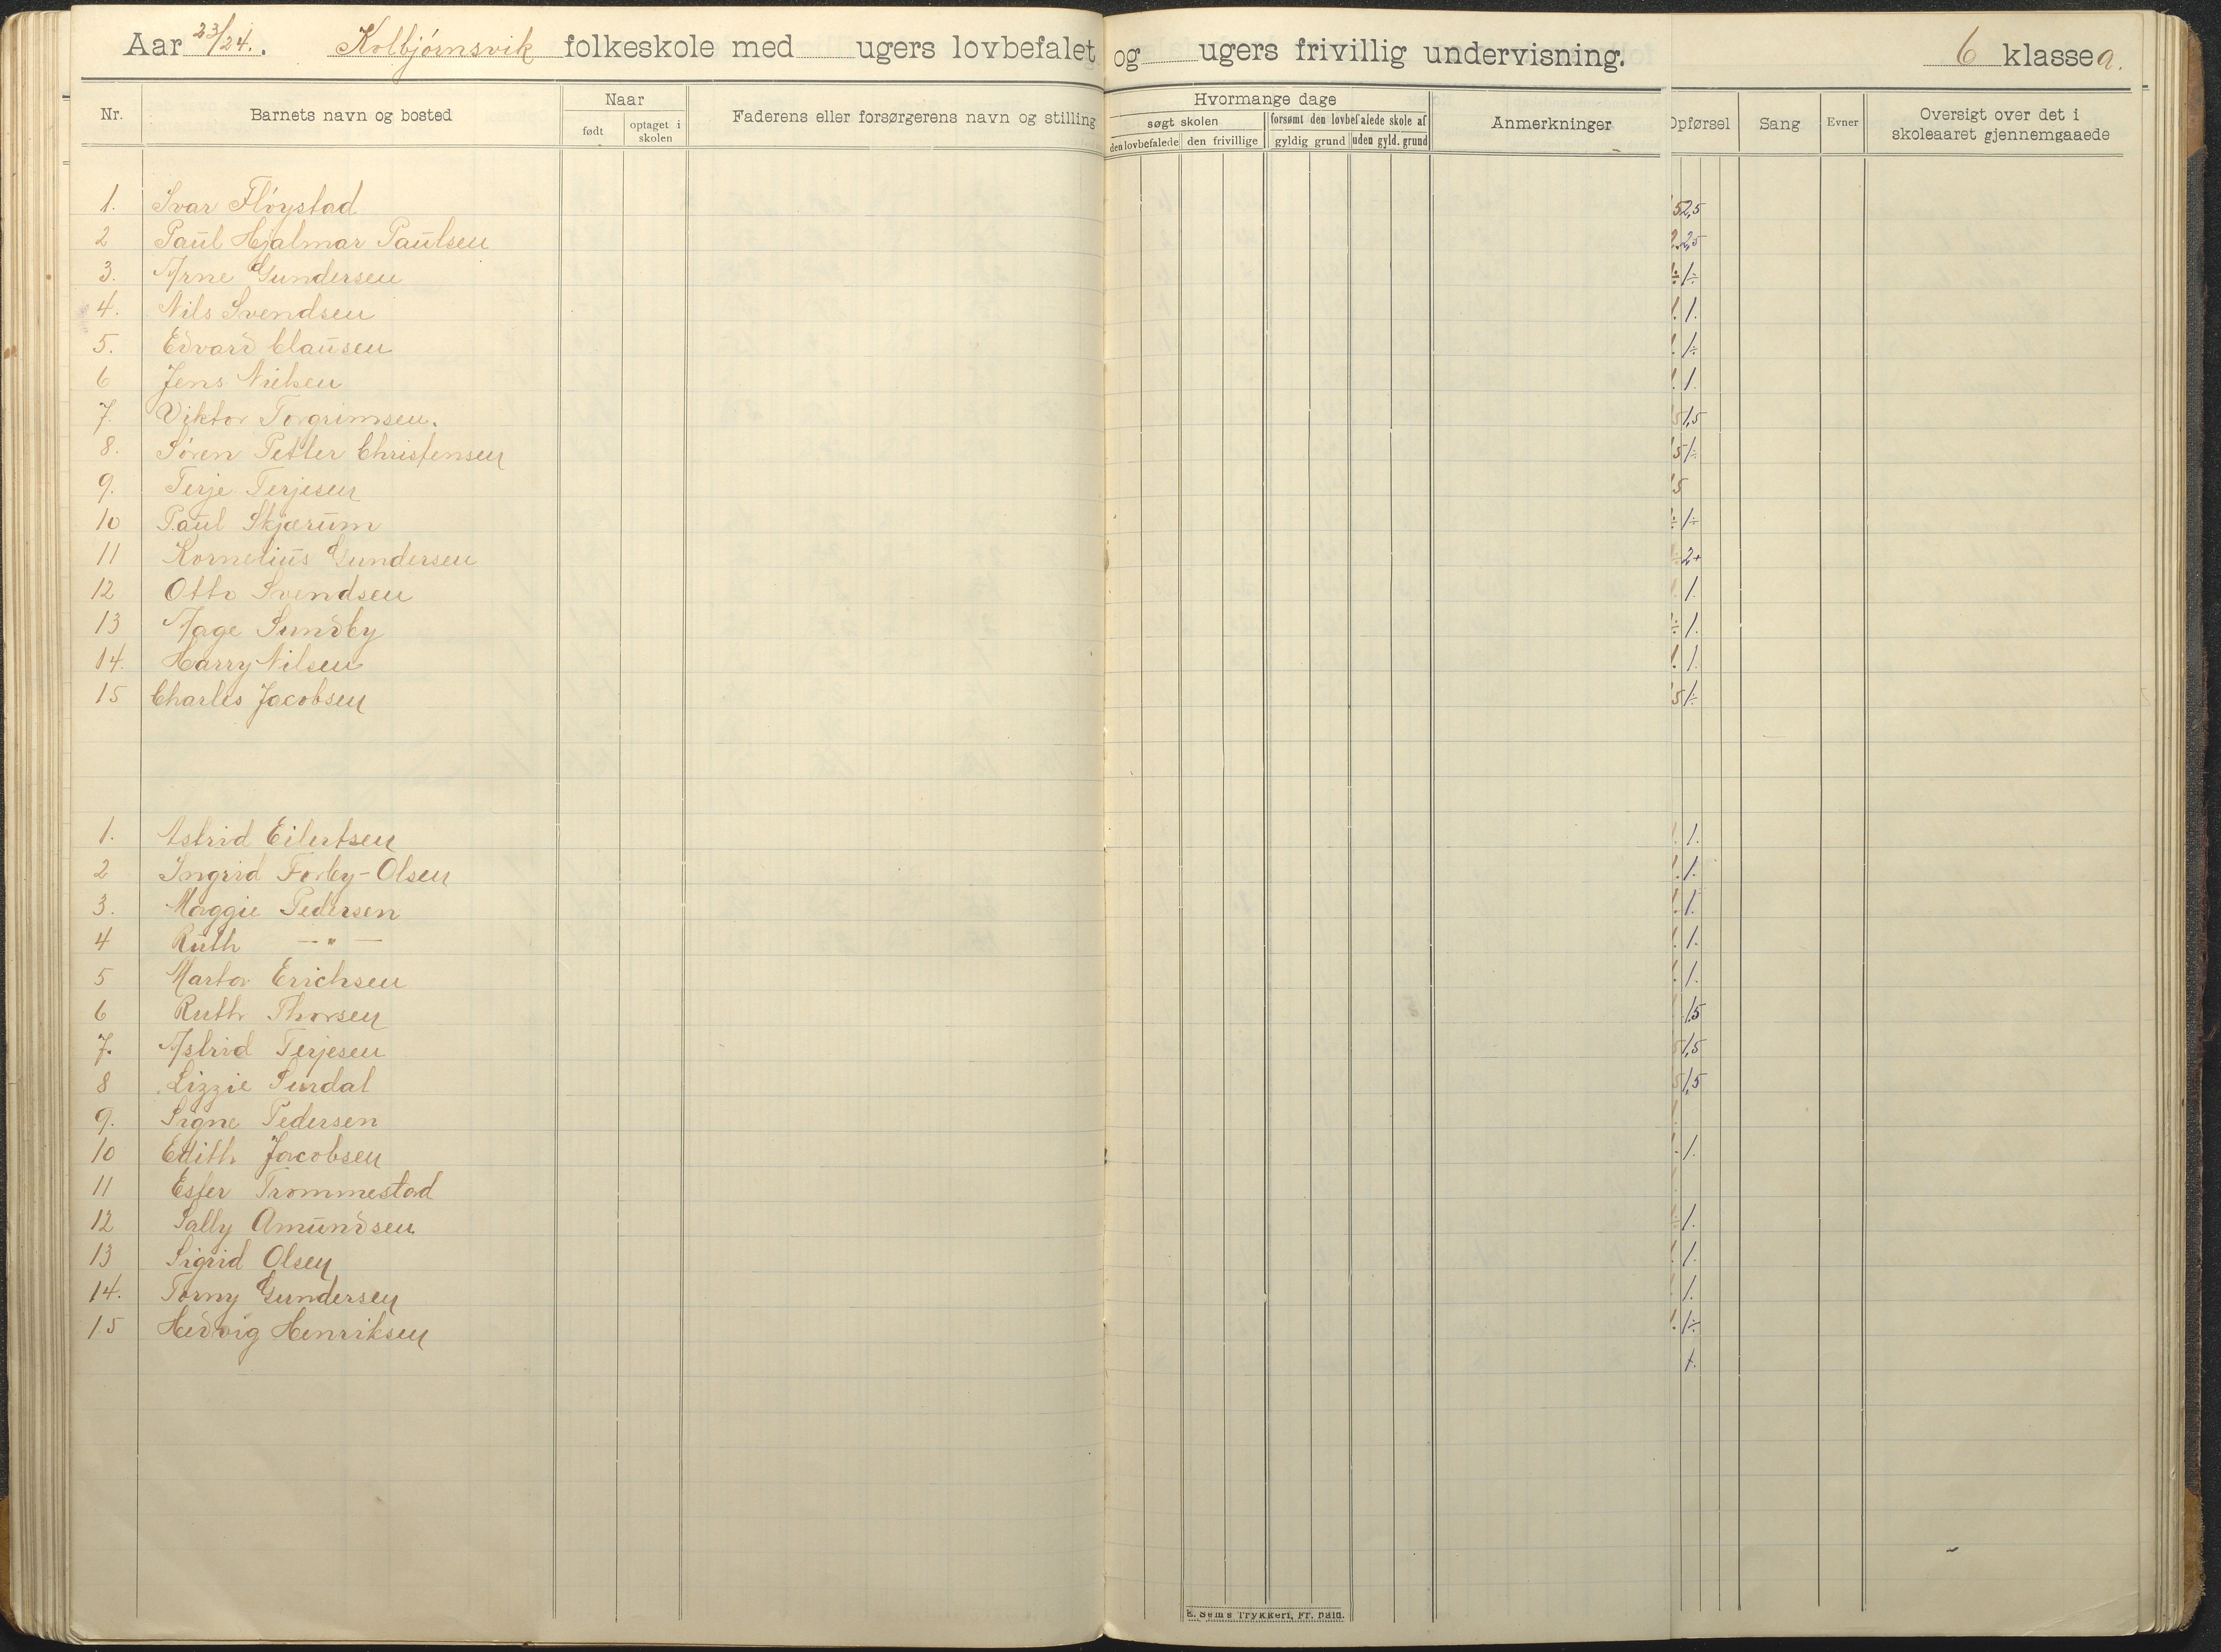 Aar 23/24. Kolbjørnsvik folkeskole med ugers lovbefalet og ugers frivillig undervisning. 6 klasse a.
Nr. Barnets navn og bosted Naar Faderens eller forsørgerens navn og stilling Hvormange dage Anmerkninger Opførsel Sang Evner Oversigt over det i skoleaaret gjennemgaaede
født optaget i skolen søgt skolen forsømt den lovbefalede skole af
den lovbefalede den frivillige gyldig grund uden gyld. grund
1. Ivar Fløystad 52,5
2 Paul Hjalmar Paulsen 2.2,5
3. Arne Gundersen 1÷ 1÷
4. Nils Svendsen 1. 1.
5. Edvard Clausen 1. 1÷
6 Jens Nielsen 1. 1.
7. Viktor Torgrimsen. 5 1,5
8. Søren Petter Christensen 5 1÷
9. Terje Terjesen 5
10 Paul Skjærum ÷ 1÷
11 Kornelius Gundersen ÷ 2+
12 Otto Svendsen 1. 1.
13 Aage Sundby 1÷ 1.
14. Harry Nilsen 1. 1.
15 Charles Jacobsen 5 1÷
1. Astrid Eilertsen 1. 1.
2 Ingrid Forby-Olsen 1. 1.
3. Maggie Pedersen 1. 1.
4 Ruth — " — 1. 1.
5 Marta Erichsen 1. 1.
6 Ruth Thorsen 1,5
7. Astrid Terjesen 5 1,5
8 Lizzie Surdal 5 1,5
9. Signe Pedersen 1.
10 Edith Jacobsen 1.
11 Ester Trommestad
12 Sally Amundsen 1÷ 1.
13 Sigrid Olsen 1. 1.
14. Torny Gundersen 1.
15 Hedvig Henriksen 1. 1÷
1.
E. Sems Trykkeri, Fr. hald.